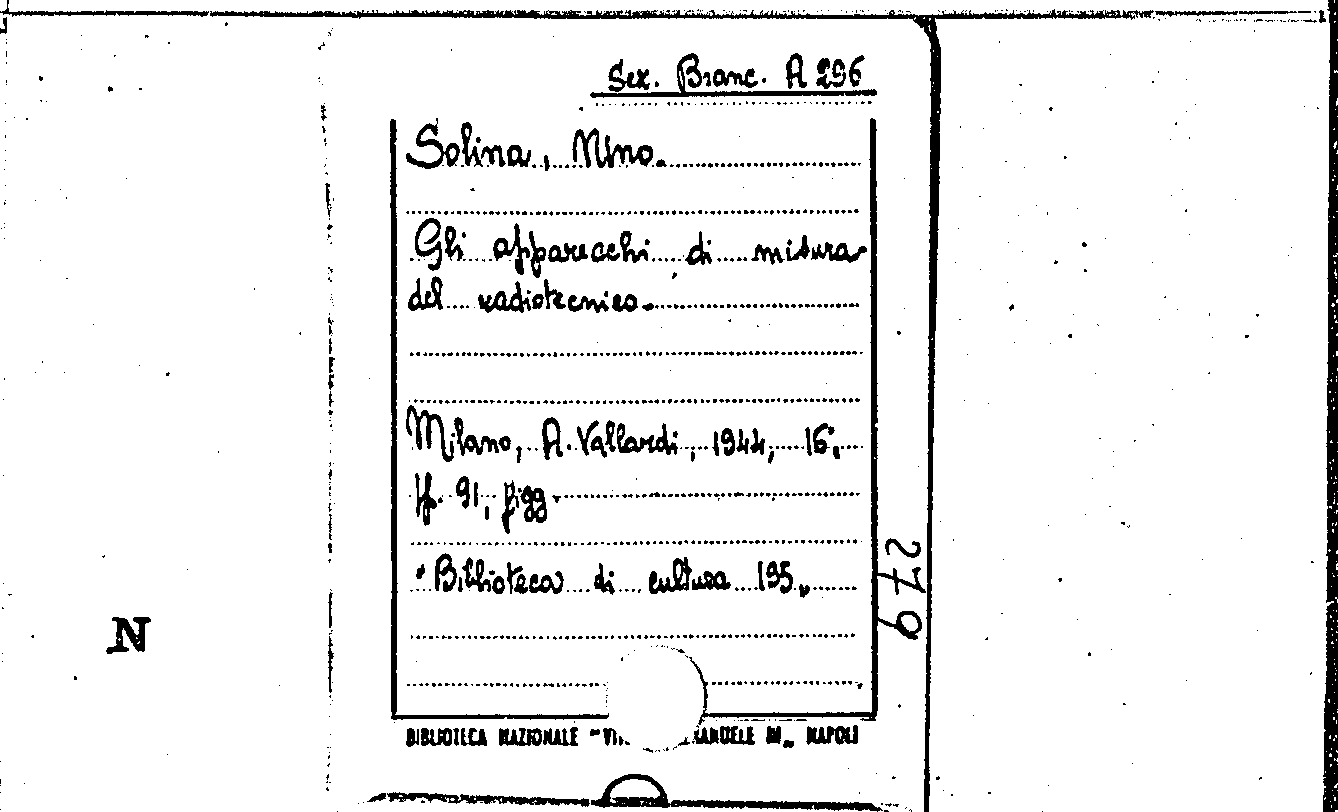 Sez. Branc. A 296
Solina, Nino.
Gli apparecchi di misura
del radiotecnico.
Milano, A. Vallardi, 1944, 16°.
pp. 91, figg.
"Biblioteca di cultura 195"
279
N
BIBLIOTECA NAZIONALE "VI ANUELE III" NAPOLI